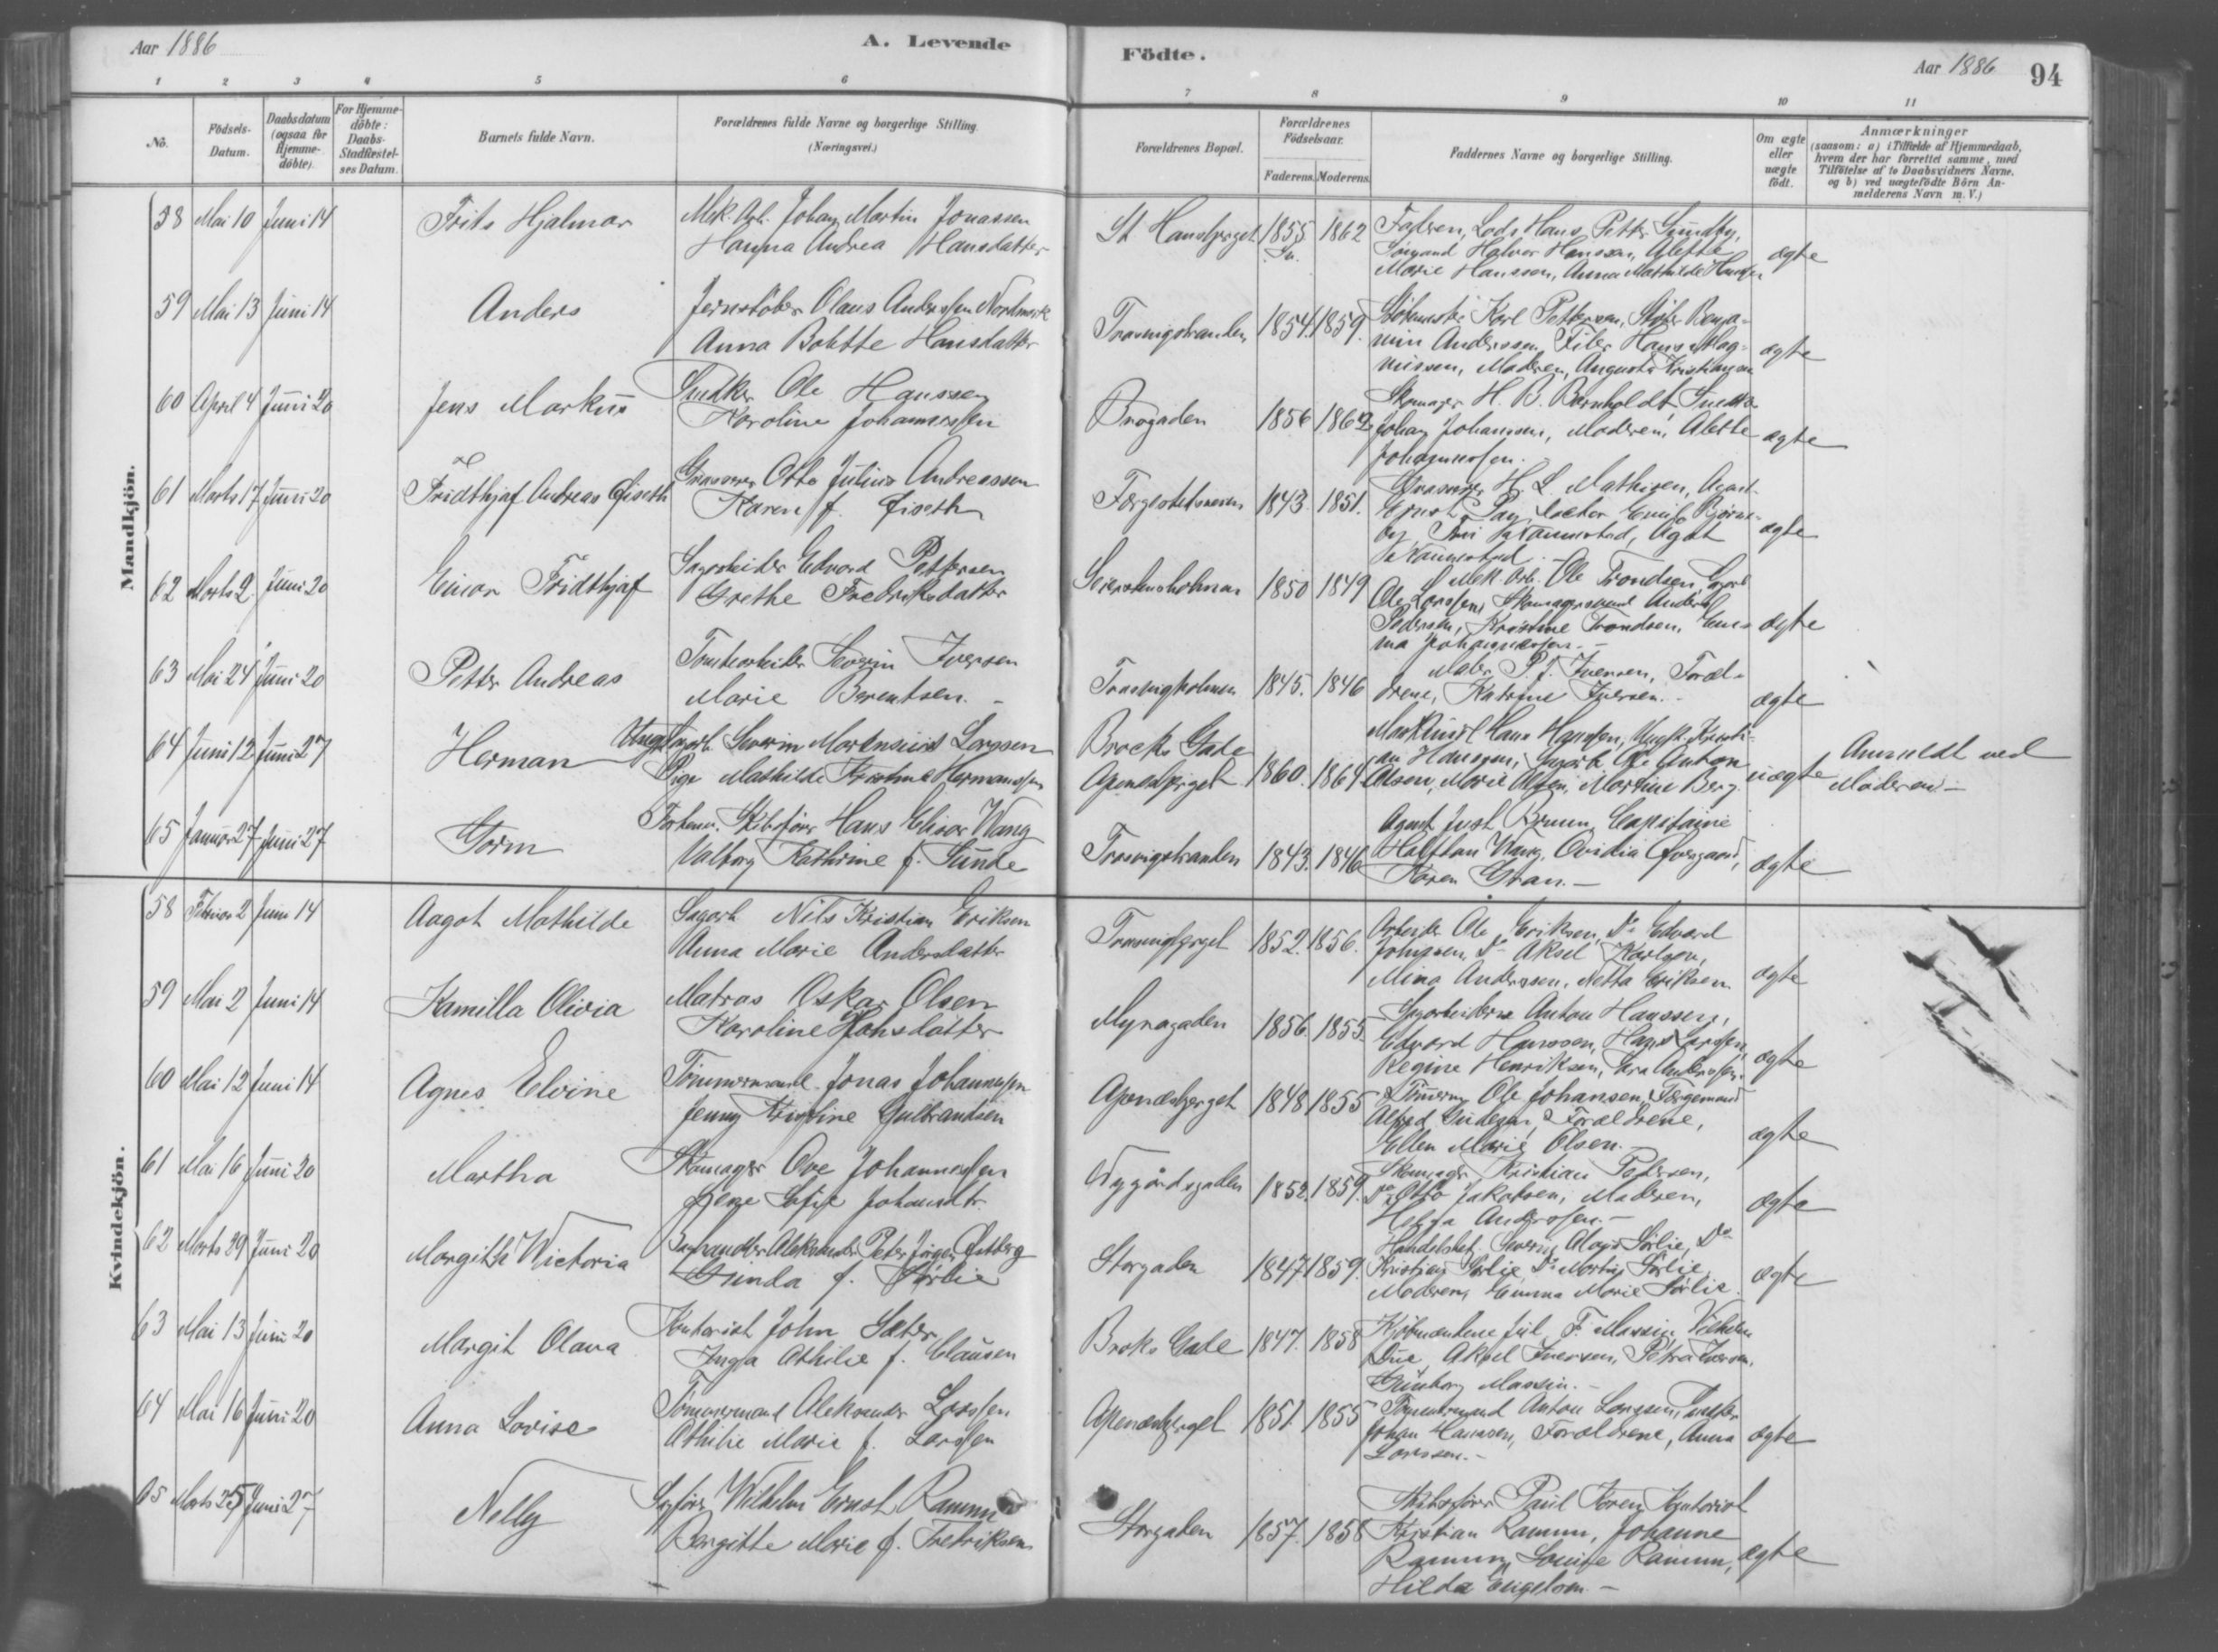 Aar 1886
A. Levende
Födte.
Aar 1886
94
1 2 3 4 5 6
7 8 9 10 11
No.
Födsels-
Datum.
Daabsdatum
(ogsaa for
Hjemme-
döbte).
For Hjemme-
döbte:
Daabs-
Stadfæstel-
ses Datum.
Barnets fulde Navn.
Forældrenes fulde Navne og borgerlige Stilling.
(Næringsvei.)
Forældrenes Bopæl.
Forældrenes
Födselsaar.
Faderens.
Moderens.
Faddernes Navne og borgerlige Stilling.
Om ægte
eller
uægte
födt.
Anmærkninger
(saasom: a) i Tilfælde af Hjemmedaab,
hvem der har forrettet samme, med
Tilföielse af to Daabsvidners Navne,
og b) ved uægtefödte Börn An-
melderens Navn m. V.)
Mandkjön.
58 Mai 10 Juni 14 Frits Hjalmar
Mek. Arb. Johan Martin Jonassen
Hanna Andrea Hansdatter
St. Hansberget 1855 1862
Faderen, Lods Hans Petter Sundby,
Sömand Halvor Hanssen, Alette
Marie Hanssen, Anna Mathilde Hanssen
ægte
59 Mai 13 Juni 14 Anders
Jernstöber Olaus Anderssen Nordmark
Anna Bolette Hansdatter
Trosvigstranden 1854. 1859.
Karl Pettersen, Benja-
min Anderssen, Filer Hans Mag-
nussen, Moderen, Augusta Kristiansen
ægte
60 April 4 Juni 20 Jens Markus
Snedker Ole Hanssen
Karoline Johannessen
Brogaden 1856 1862
Skomager H. B. Bernholdt, Snedker
Johan Johanssen, Moderen, Alette
Johannessen.
ægte
61 Marts 17 Juni 20 Fridthjof Andreas Fiseth
Grosserer Otto Julius Andreassen
Karen f. Fiseth
Færgestedsveien 1843. 1851.
Grosserer H. L. Mathisen, Agent
Ernst Bjørne-
by,
ægte
62 Marts 2. Juni 20 Einar Fridthjof
Sagarbeider Edvard Pettersen
Grethe Fredriksdatter
1850 1849
Mek. Arb. Ole Trondsen, Sagarb.
Ole Larssen, Skomagersvend Anders
Pedersen, Kristine Trondsen, Em-
ma Johannessen. -
ægte
63 Mai 24 Juni 20 Petter Andreas
Tomtearbeider Severin Iversen
Marie Berentsen. -
Trosvigholmen 1845. 1846
Maler P. J. Iversen, Foræl-
drene, Katrine Iversen. -
ægte
64 Juni 12 Juni 27 Herman
Ungk. Sagarb. Severin Martinsius Larssen
Pige Mathilde Kristine Hermanssen
Brocks Gade
Apenesbjerget 1860. 1864
Hans Hanssen, Ungk. Kristi-
an Hanssen, Sagarb. Ole Anton
Olsen, Marie Olsen, Martine Berg.
uægte
Anmeldt ved
Moderen. -
65 Januar 27 Juni 27 Gorm
Forhenv. Skibsförer Hans Elisar Wang
Valborg Kathrine f. Sunde
Trosvigstranden 1843. 1846
Agent Just Bruun, Capitaine
Halfdan Wang, Ovidia Overgaard,
Karen Gran. -
ægte
Kvindekjön.
58 Februar 2 Juni 14 Aagot Mathilde
Sagarb. Nils Kristian Eriksen
Anna Marie Andersdatter
Trosvigberget 1852. 1856.
Arbeider Ole Eriksen, Do Edvard
Johnsen, Do Aksel Karlsen,
Mina Anderssen, Netta Eriksen.
ægte
59 Mai 2 Juni 14 Kamilla Olivia
Matros Oskar Olsen
Karoline Hansdatter
Myragaden 1856. 1855.
Sagarbeiderne Anton Hanssen,
Edvard Hanssen, Hans Larssen,
Regine Henriksen,
ægte
60 Mai 12 Juni 14 Agnes Elvine
Tömmermand Jonas Johannessen
Jenny Kristine Gulbrandsen
Apenesberget 1848 1855
Ole Johansen, Færgemand
Alfred Gudesen, Forældrene,
Ellen Marie Olsen. -
ægte
61 Mai 16 Juni 20 Martha
Skomager Ove Johannessen
Sofie Johansdtr.
Nygårdsgaden 1852. 1859.
Skomager Kristian Pedersen,
Do Otto Jakobsen, Moderen,
Helga Anderssen. -
ægte
62 Marts 29 Juni 20 Margitha Wictoria
Aleksander Peter Jörgen Östberg
Gunda f. Sörlie
Storgaden 1847 1859.
Handelsbet. Severin Aloys Sörlie, Do
Kristian Sörlie, Do Martin Sörlie,
Moderen, Emma Marie Sörlie.
ægte
63 Mai 13 Juni 20 Margit Olava
Kontorist John Sæter
Inga Othilie f. Clausen
Broks Gade 1847. 1858
Kjöbmændene Jul. F. Massin, Vilhelm
Due, Aksel Iversen, Petra Iversen,
Gunborg Massin. -
64 Mai 16 Juni 20 Anna Lovise
Tömmermand Aleksander Larssen
Othilie Marie f. Larssen
Apenesberget 1851. 1855
Tömmermand Anton Larssen,
Johan Hanssen, Forældrene, Anna
Larssen. -
ægte
65 Marts 25 Juni 27 Nelly
Wilhelm Ernst Ramm
Bergitte Marie f. Fredriksen
Storgaden 1857. 1858
Skibsförer Paul Koren, Kontorist
Kristian Ramm, Johanne
Ramm, Louise Ramm,
Hilda Engstrøm. -
ægte